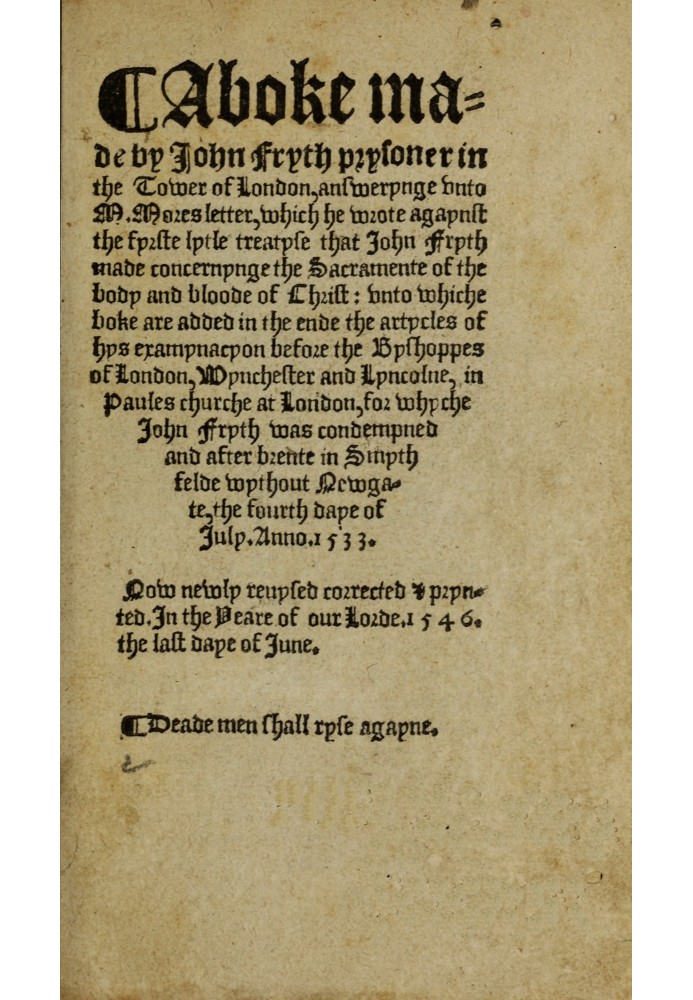 ¶A boke ma=
de by John Fryth prysoner in
the Tower of London, answerynge vnto
M. Mores letter, which he wrote agaynst
the fyrste lytle treatyse that John Fryth
made concernynge the Sacramente of the
body and bloode of Christ: vnto whiche
boke are added in the ende the artycles of
hys examynacyon before the Byshoppes
of London, Wynchester and Lyncolne, in
Paules churche at London, for whyche
John Fryth was condempned
and after brente in Smyth
felde wythout Newga=
te, the fourth daye of
July. Anno. 1533.
Now newly reuysed corrected & pryn=
ted. In the Yeare of our Lorde. 1546.
the last daye of June.
¶Deade men shall ryse agayne.